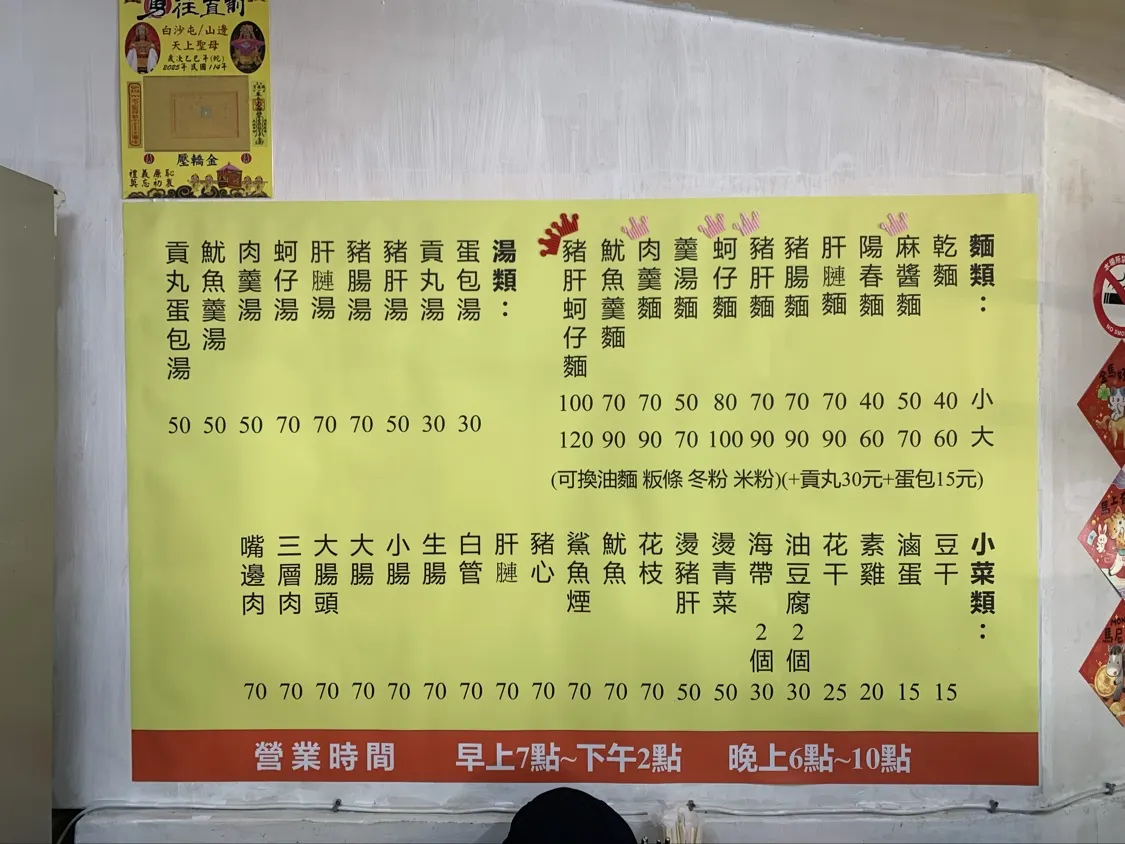 勇往直前
白沙屯/山邊
天上聖母
歲次乙巳年(蛇)
2025年民國114年
壓轎金
禮義廉恥
莫忘初衷
麵類：
小
大
乾麵 40 60
麻醬麵 50 70
陽春麵 40 60
肝腱麵 70 90
豬腸麵 70 90
豬肝麵 70 90
蚵仔麵 80 100
羹湯麵 50 70
肉羹麵 70 90
魷魚羹麵 70 90
豬肝蚵仔麵 100 120
(可換油麵 粄條 冬粉 米粉)(+貢丸30元+蛋包15元)
湯類：
蛋包湯 30
貢丸湯 30
豬肝湯 50
豬腸湯 70
肝腱湯 70
蚵仔湯 70
肉羹湯 50
魷魚羹湯 50
貢丸蛋包湯 50
小菜類：
豆干 15
滷蛋 15
素雞 20
花干 25
油豆腐2個 30
海帶2個 30
燙青菜 50
燙豬肝 50
花枝 70
魷魚 70
鯊魚煙 70
豬心 70
肝腱 70
白管 70
生腸 70
小腸 70
大腸 70
大腸頭 70
三層肉 70
嘴邊肉 70
營業時間 早上7點~下午2點 晚上6點~10點